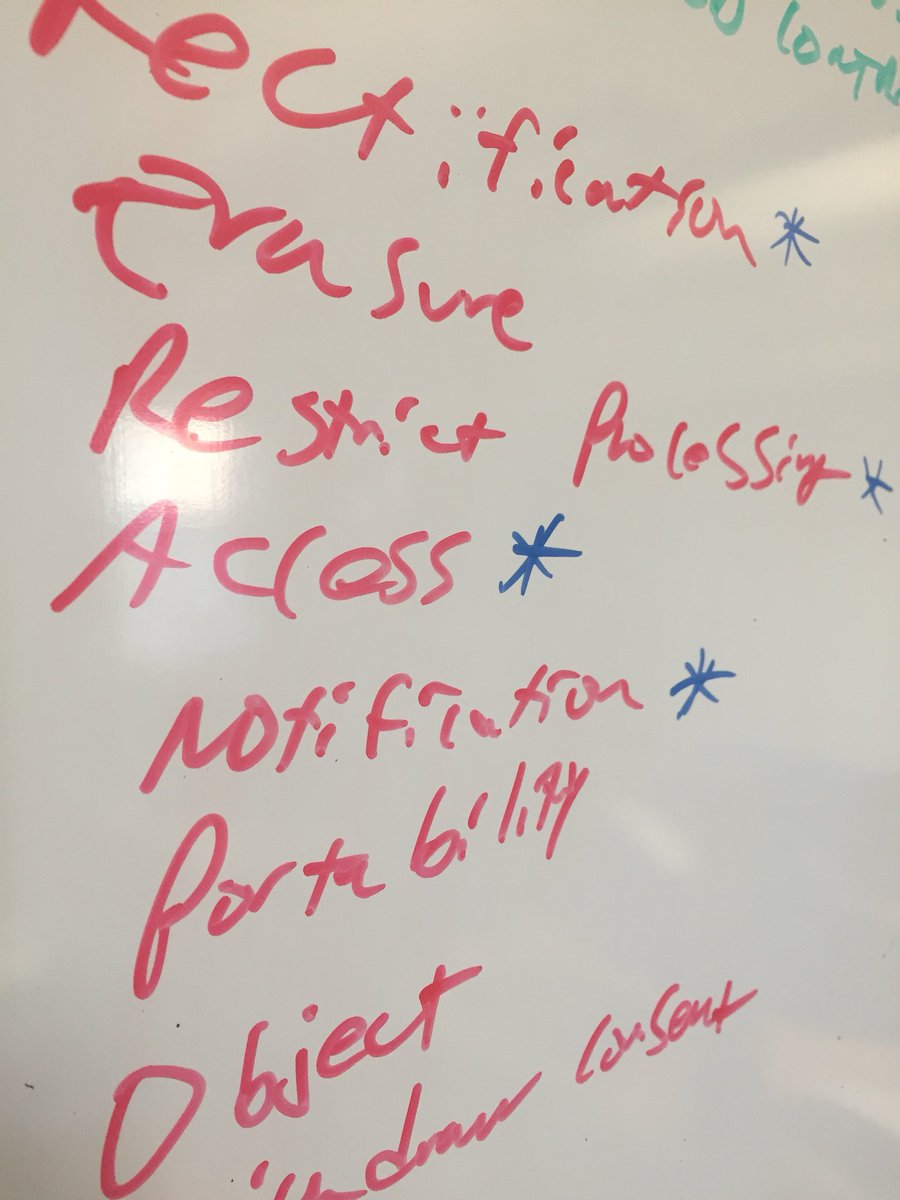 Rectification *
Erasure
Restrict Processing *
Access *
Notification *
Portability
Object
consent